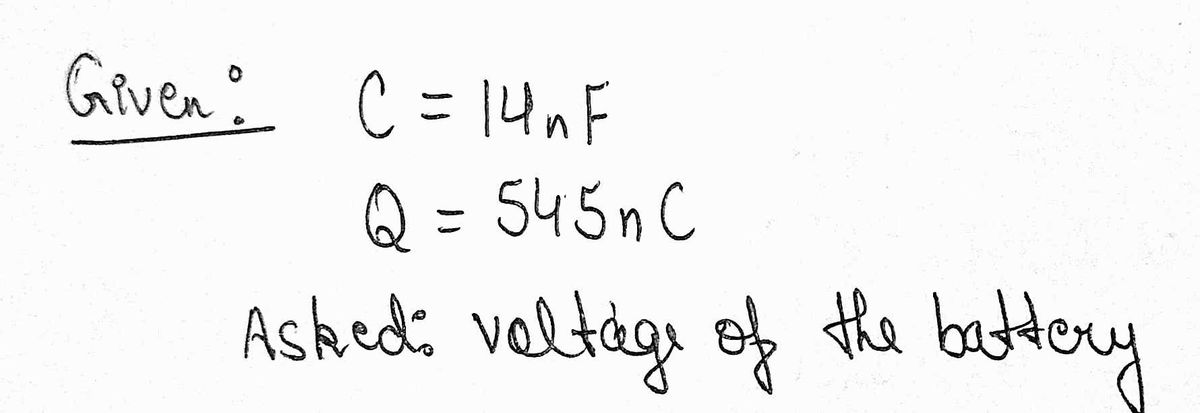 Given: C = 14nF
Q = 545nC
Asked: voltage of the battery